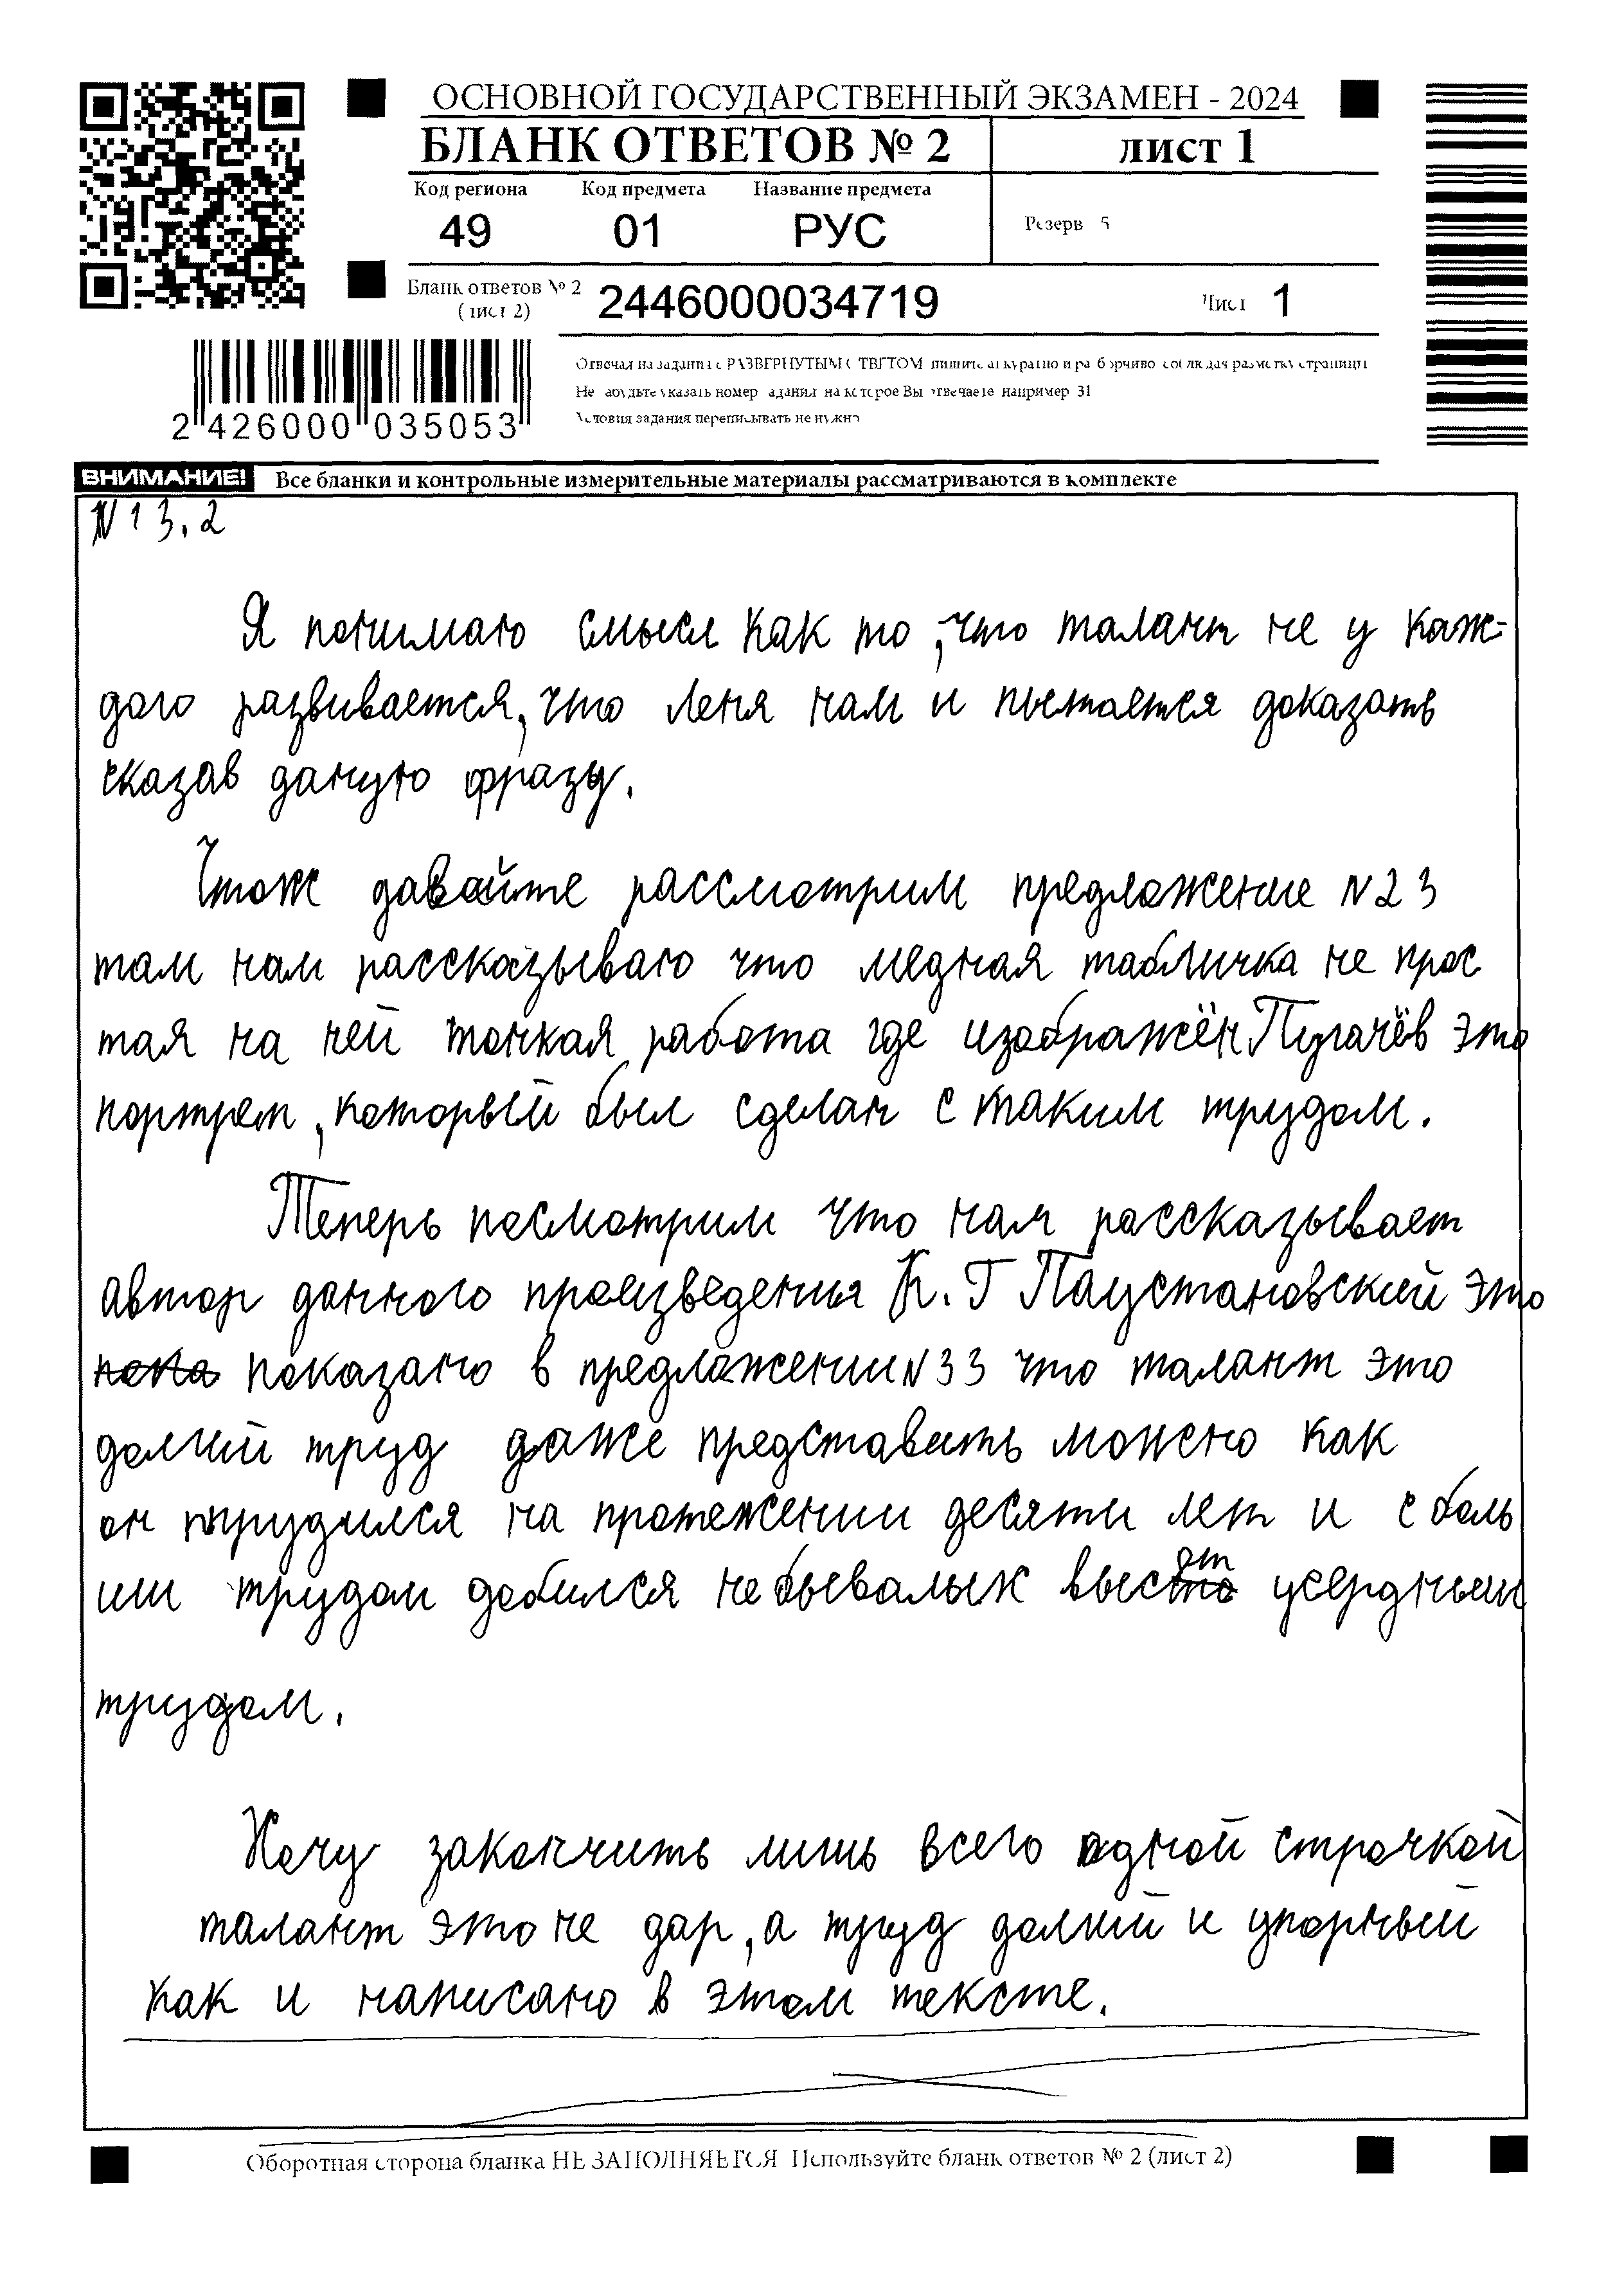 ОСНОВНОЙ ГОСУДАРСТВЕННЫЙ ЭКЗАМЕН - 2024
БЛАНК ОТВЕТОВ № 2 лист 1
Код региона Код предмета Название предмета
49 01 РУС
Резерв 5
Бланк ответов № 2
(лист 2)
2446000034719
Лист 1
Отвечая на задания с РАЗВЕРНУТЫМ ОТВЕТОМ пишите аккуратно и разборчиво соблюдая разметку страницы
Не забудьте указать номер задания на которое Вы отвечаете например 31
Условия задания переписывать не нужно
2 426000 035053
ВНИМАНИЕ! Все бланки и контрольные измерительные материалы рассматриваются в комплекте
№13.2
Я понимаю смысл как то, что талант не у каж-
дого развивается, что Леня нам и пытается доказать
сказав даную фразу.
Чтож давайте рассмотрим предложение №23
там нам рассказываю что медная табличка не прос
тая на ней тонкая работа где изображён Пугачёв это
портрет, который был сделан с таким трудом.
Теперь посмотрим что нам рассказывает
автор данного произведения К. Г Паустановский это
пока показано в предложении №33 что талант это
долгий труд даже представить можно как
он трудился на протежении десяти лет и с боль
шим трудом добился небывалых высот усердным
трудом.
Хочу закончить лишь всего одной строчкой
талант это не дар, а труд долгий и упорный
как и написано в этом тексте.
Оборотная сторона бланка НЕ ЗАПОЛНЯЕТСЯ Используйте бланк ответов № 2 (лист 2)